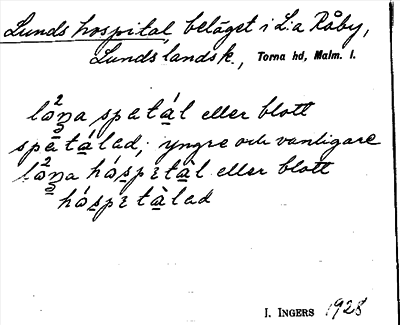 Lunds hospital beläget i L:a Råby,
Lunds landsk., Torna hd, Malm. l.
spatál eller blott
spatálad; yngre och vanligare
hóspɪtàl eller blott
hóspɪtàlad
I. INGERS 1928